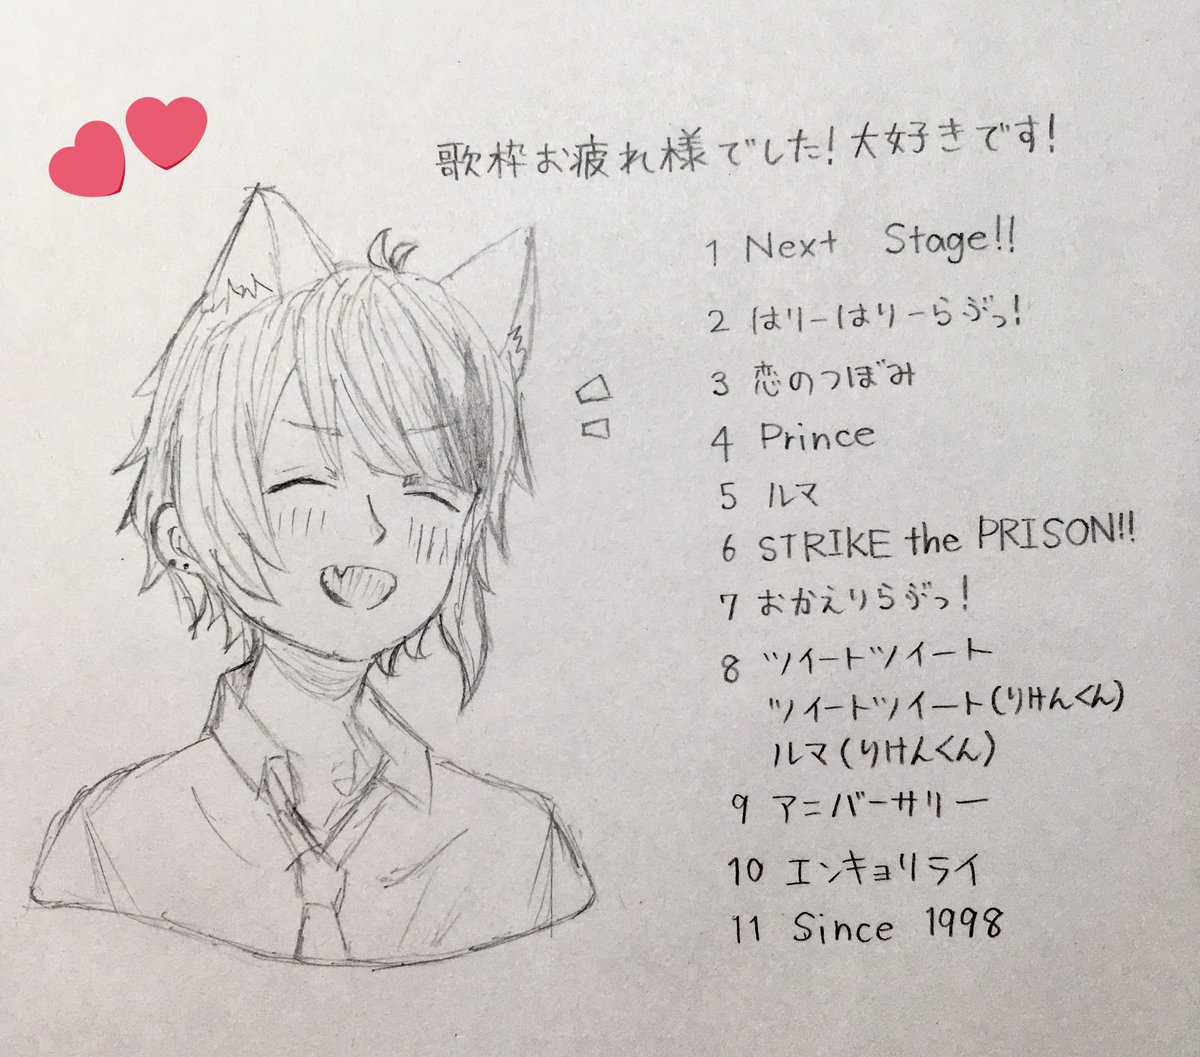 歌枠お疲れ様でした!大好きです!
1 Next Stage!!
2 はりーはりーらぶっ!
3 恋のつぼみ
4 Prince
5 ルマ
6 STRIKE the PRISON!!
7 おかえりらぶっ!
8 ツイートツイート
ツイートツイート(りけんくん)
ルマ(りけんくん)
9 アニバーサリー
10 エンキョリライ
11 Since 1998